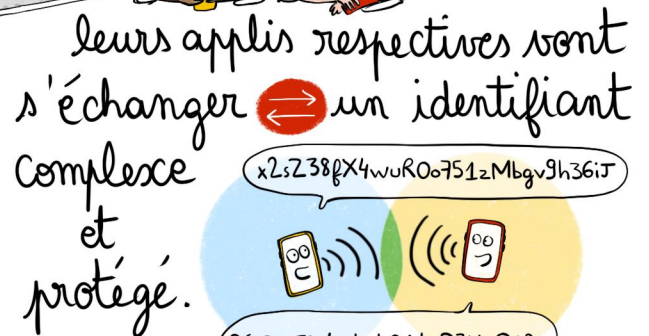 leurs applis respectives vont
s'échanger un identifiant
complexe
x2sZ38fX4wuROo751zMbgv9h36iJ
et
protégé.